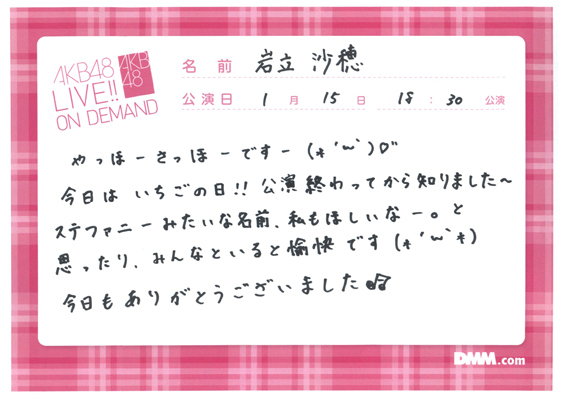 AKB48
LIVE!!
ON DEMAND
AKB
48
名前 岩立 沙穂
公演日 1月 15日 18:30 公演
やっほーさっほーですー(*´ω`)♡"
今日は いちごの日!! 公演 終わってから知りました〜
ステファニーみたいな名前、私もほしいなー。と
思ったり、みんなといると愉快です(*´ω`*)
今日もありがとうございました♬
DMM.com